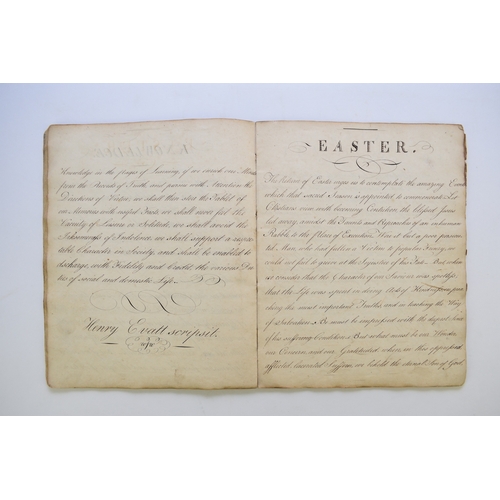 Knowledge in the pages of Learning if we enrich our Minds
from the Records of Truth and pursue with Attention the
Directions of Virtue, we shall then
our Memories with useful Facts we shall never feel the
Vacuity of Leisure or Solitude, we shall avoid the
of Indolence, we shall support a respec
table Character in Society and shall be enabled to
discharge, with Fidelity and Credit, the various Du
ties of social and domestic Life
Henry Evatt scripsit.
EASTER.
The Return of Easter urges us to contemplate the amazing Event
which that sacred Season is appointed to commemorate Let
Christians view with becoming Contrition the blessed Jesus
led away, amidst the Taunts and Reproaches of an inhuman
Rabble to the Place of Execution Were it but a poor persecu
ted Man, who had fallen a Victim to popular Frenzy, we
could not fail to grieve at the Injustice of his Fate But when
we consider that the Character of our Saviour was spotless
that the Life was spent in doing Acts of Kindness in preach
ing the most important Truths and in teaching the Way
of Salvation We must be impressed with the deepest Sense
of his suffering Condition But what must be our Wonder
our Concern and our Gratitude when in this oppressed
afflicted, lacerated Sufferer, we behold the eternal Son of God